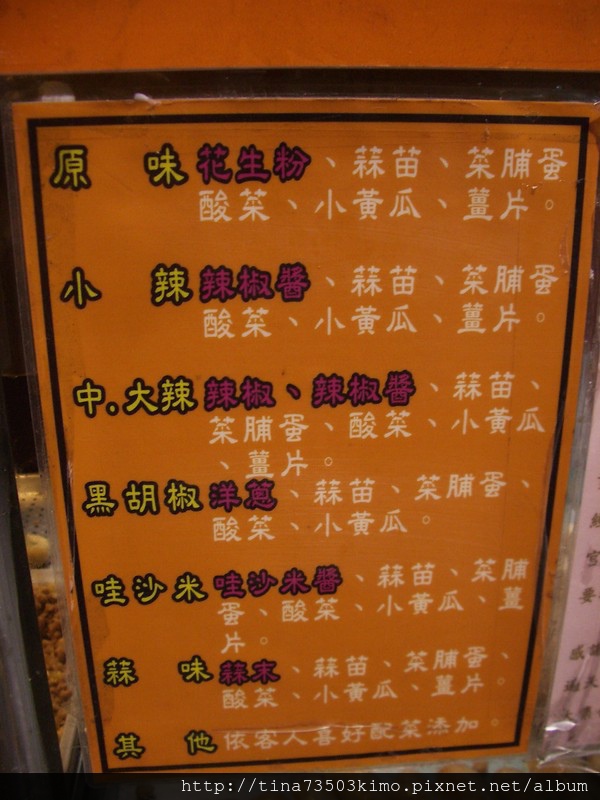 原味 花生粉、蒜苗、菜脯蛋
酸菜、小黃瓜、薑片。
小辣 辣椒醬、蒜苗、菜脯蛋
酸菜、小黃瓜、薑片。
中.大辣 辣椒、辣椒醬、蒜苗、
菜脯蛋、酸菜、小黃瓜
、薑片。
黑胡椒 洋蔥、蒜苗、菜脯蛋、
酸菜、小黃瓜。
哇沙米 哇沙米醬、蒜苗、菜脯
蛋、酸菜、小黃瓜、薑
片。
蒜味 蒜末、蒜苗、菜脯蛋、
酸菜、小黃瓜、薑片。
其他 依客人喜好配菜添加。
http://tina73503kimo.pixnet.net/album